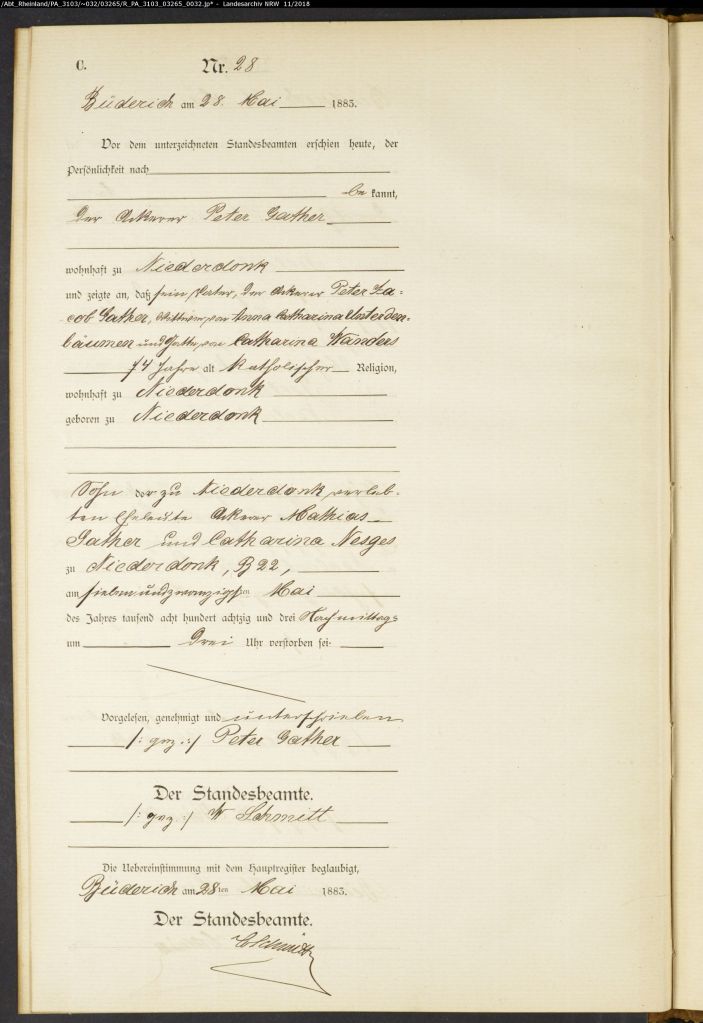 /Abt_Rheinland/PA_3103/~032/03265/R_PA_3103_03265_0032.jp* - Landesarchiv NRW 11/2018
C.
Nr. 28
Büderich am 28. Mai 1883.
Vor dem unterzeichneten Standesbeamten erschien heute, der
Persönlichkeit nach
be kannt,
der Ackerer Peter Gather
wohnhaft zu Niederdonk
und zeigte an, daß sein Vater, der Ackerer Peter Ja=
cob Gather, Wittwer von Anna Catharina Unterden=
bäumen und Gatte von Catharina Wanders
74 Jahre alt katholischer Religion,
wohnhaft zu Niederdonk
geboren zu Niederdonk
Sohn der zu Niederdonk verleb=
ten Eheleute Ackerer Mathias
Gather und Catharina Nesges
zu Niederdonk, B 22,
am siebenundzwanzigsten Mai
des Jahres tausend acht hundert achtzig und drei Nachmittags
um drei Uhr verstorben sei.
Vorgelesen, genehmigt und unterschrieben
/: gez. :/ Peter Gather
Der Standesbeamte.
/: gez :/ W Schmitt
Die Uebereinstimmung mit dem Hauptregister beglaubigt,
Büderich am 28ten Mai 1883.
Der Standesbeamte.